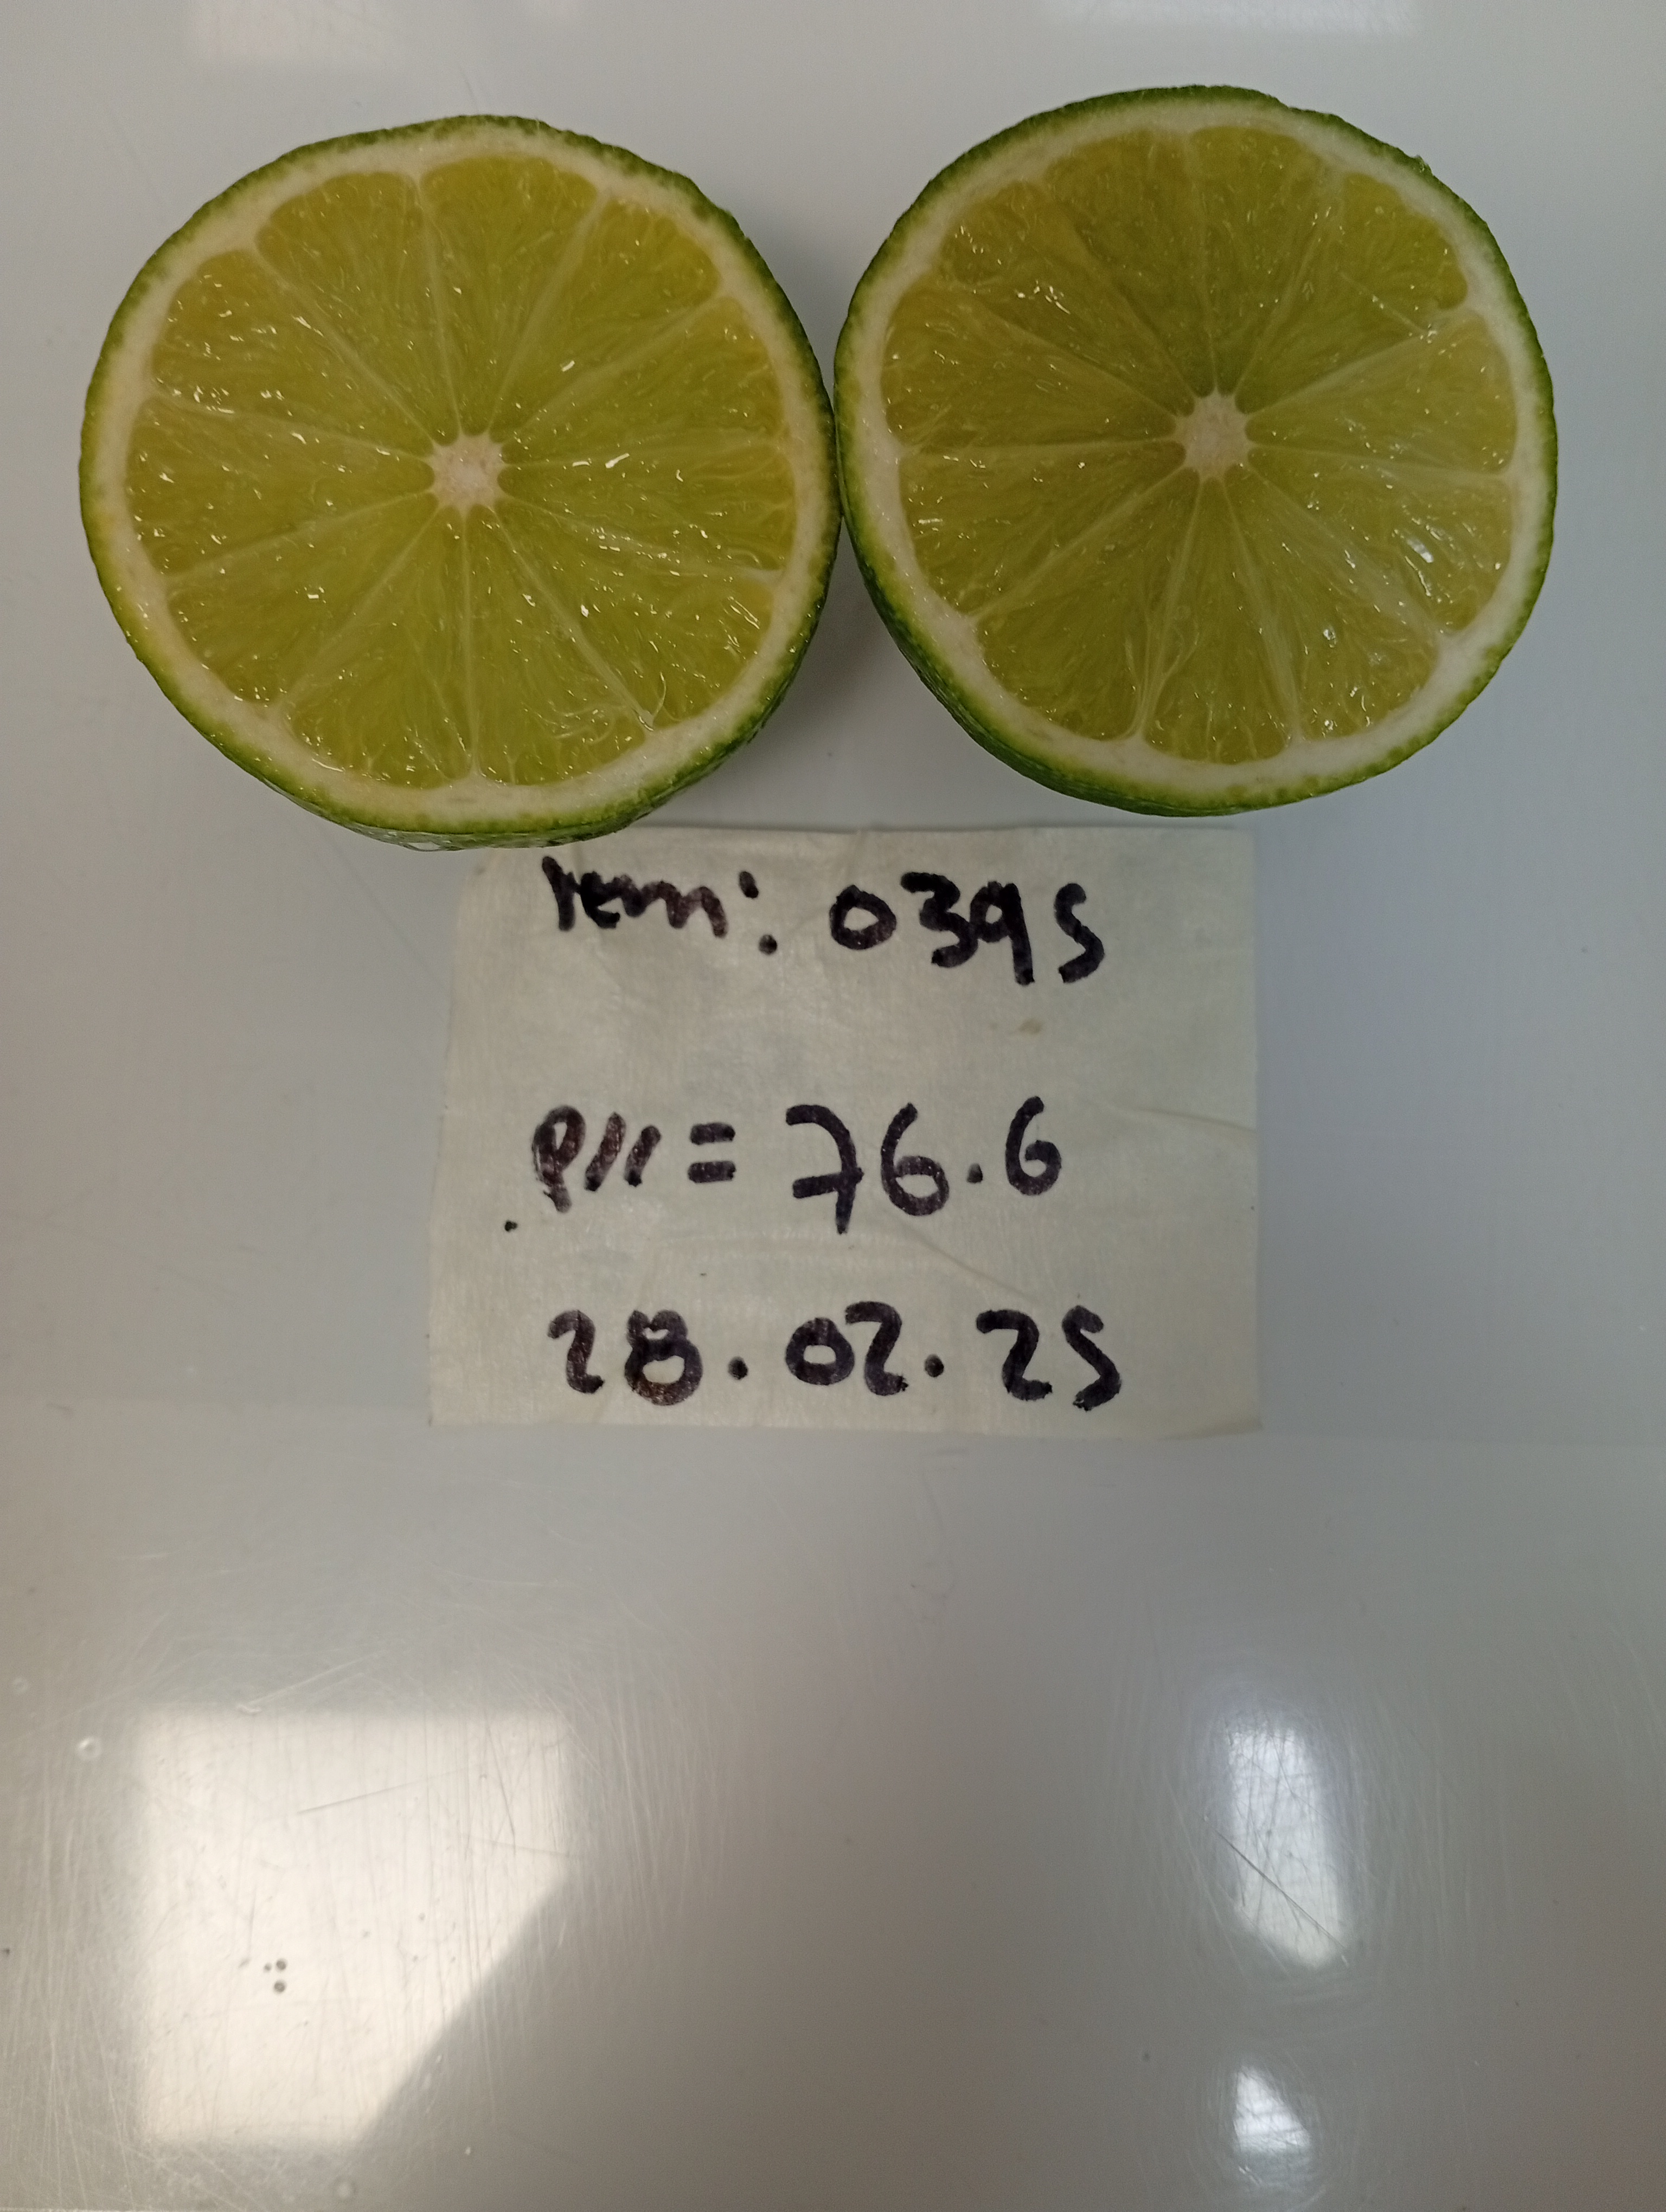 Item: 0395
P11 = 76.6
28.02.25